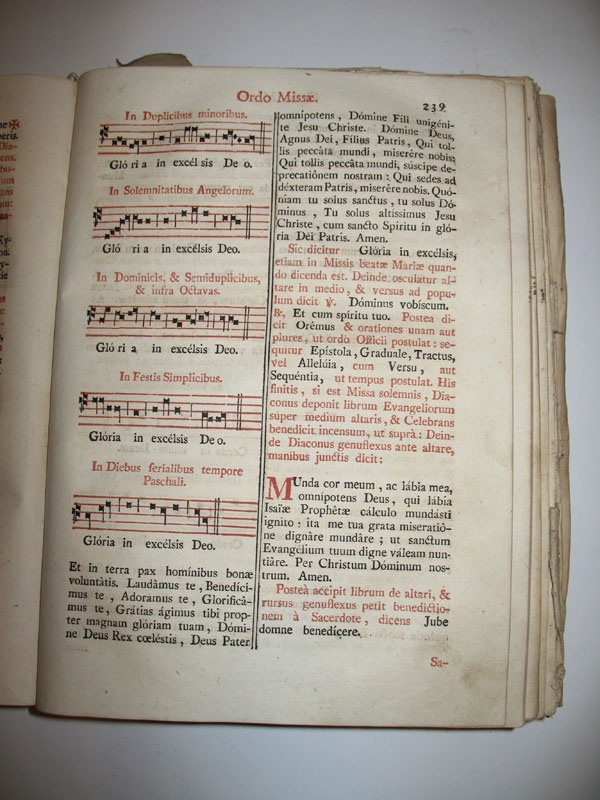 Ordo Missæ.
239
In Duplicibus minoribus.
Gló ri a in excél sis De o.
In Solemnitatibus Angelorum.
Gló ri a in excélsis Deo.
In Dominicis, & Semiduplicibus,
& infra Octavas.
Gló ri a in excélsis Deo.
In Festis Simplicibus.
Glória in excélsis De o.
In Diebus ferialibus tempore
Paschali.
Glória in excélsis Deo.
Et in terra pax homínibus bonæ
voluntâtis. Laudâmus te, Benedici-
mus te, Adoramus te, Glorificâ-
mus te, Grátias ágimus tibi prop-
ter magnam glóriam tuam, Dómi-
ne Deus Rex cœléstis, Deus Pater
omnipotens, Dómine Fili unigéni-
te Jesu Christe. Dómine Deus,
Agnus Dei, Filius Patris, Qui tol-
lis peccâta mundi, miserére nobis;
Qui tollis peccâta mundi, súscipe de-
precatiônem nostram: Qui sedes ad
déxteram Patris, miserére nobis. Quó-
niam tu solus sanctus, tu solus Dó-
minus, Tu solus altissimus Jesu
Christe, cum sancto Spiritu in gló-
ria Dei Patris. Amen.
Sic dicitur Glória in excélsis,
etiam in Missis beatæ Mariæ quan-
do dicenda est. Deinde osculatur al-
tare in medio, & versus ad popu-
lum dicit ℣. Dóminus vobíscum.
℟. Et cum spíritu tuo. Postea di-
cit Orêmus & orationes unam aut
plures, ut ordo Officii postulat: se-
quitur Epístola, Graduale, Tractus,
vel Allelúia, cum Versu, aut
Sequéntia, ut tempus postulat. His
finitis, si est Missa solemnis, Dia-
conus deponit librum Evangeliorum
super medium altaris, & Celebrans
benedicit incensum, ut suprà: Dein-
de Diaconus genuflexus ante altare,
manibus junctis dicit:
MUnda cor meum, ac lábia mea,
omnípotens Deus, qui lábia
Isaïæ Prophêtæ cálculo mundásti
ignito: ita me tua grata miseratiô-
ne dignâre mundâre; ut sanctum
Evangélium tuum digne váleam nun-
tiâre. Per Christum Dóminum nos-
trum. Amen.
Posteà accipit librum de altari, &
rursus genuflexus petit benedictio-
nem à Sacerdote, dicens Jube
domne benedícere.
Sa-